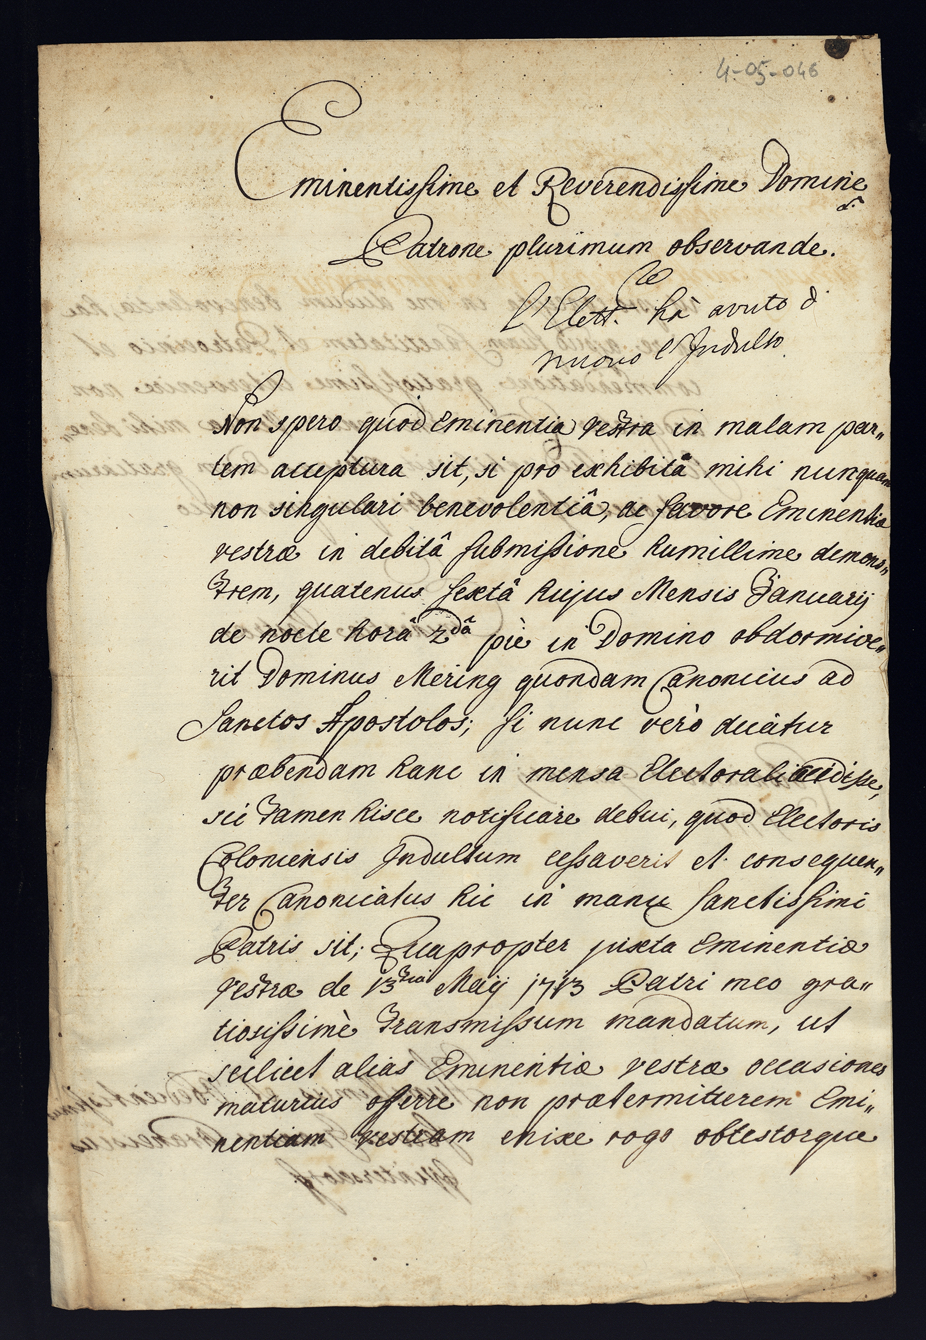 4-05-046
Eminentissime et Reverendissime Domine
Patrone plurimum observande.
l'Elett.ce hà avuto d
nuovo l'Indulto
Non spero quod Eminentia vestra in malam par„
tem acceptura sit, si pro exhibitâ mihi nunquam
non singulari benevolentiâ, ac favore Eminentiæ
vestræ in debitâ submissione humillime demons„
trem, quatenus sextâ hujus Mensis Januarij
de nocte horâ 2dâ piè in Domino obdormive„
rit Dominus Mering quondam Canonicus ad
Sanctos Apostolos; si nunc verò dicatur
præbendam hanc in mensa Electorali cecidisse,
sic tamen hisce notificare debui, quod Electoris
Coloniensis Indultum cessaverit et consequen„
ter Canonicatus hic in manu sanctissimi
Patris sit; Quapropter juxta Eminentiæ
vestræ de 13tia Maij 1713 Patri meo gra„
tiosissimè transmissum mandatum, ut
scilicet alias Eminentiæ vestræ occasiones
maturius offerre non prætermitterem Emi„
nentiam vestram enixe rogo obtestorque